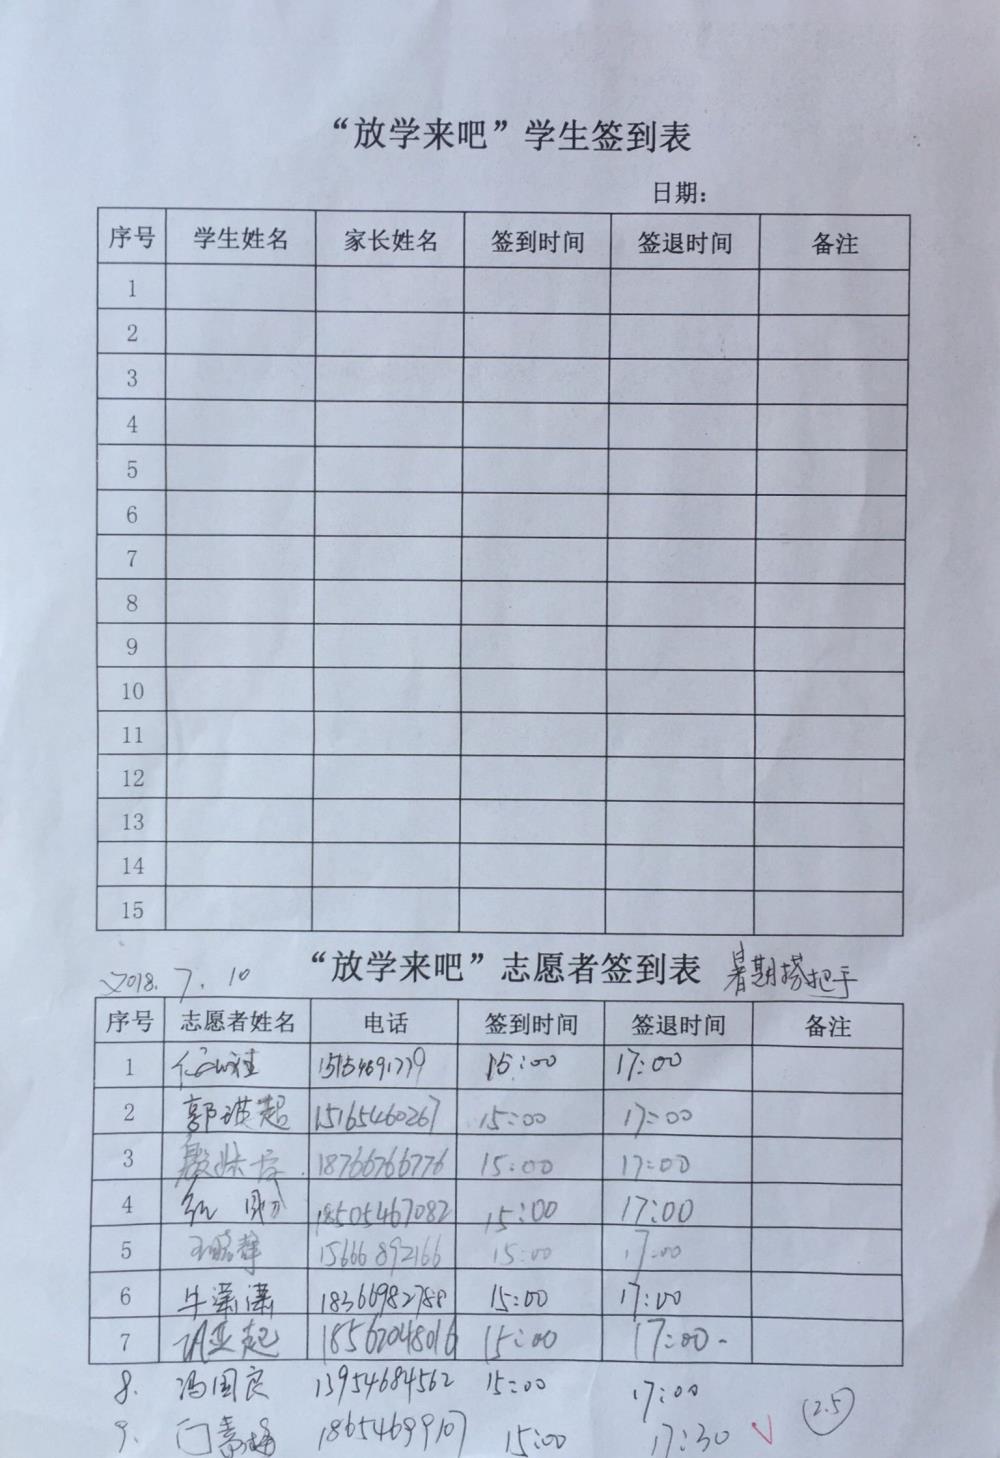 “放学来吧”学生签到表
日期：
序号 学生姓名 家长姓名 签到时间 签退时间 备注
1
2
3
4
5
6
7
8
9
10
11
12
13
14
15
2018.7.10 “放学来吧”志愿者签到表 暑期搭把手
序号 志愿者姓名 电话 签到时间 签退时间 备注
1 15:00 17:00
2 15165460267 15:00 17:00
3 18766766776 15:00 17:00
4 18505467082 15:00 17:00
5 王晓静 15666892166 15:00 17:00
6 牛潇潇 18366982788 15:00 17:00
7 18562048016 15:00 17:00
8. 冯国良 13954684562 15:00 17:00
9. 18654699107 15:00 17:30 2.5